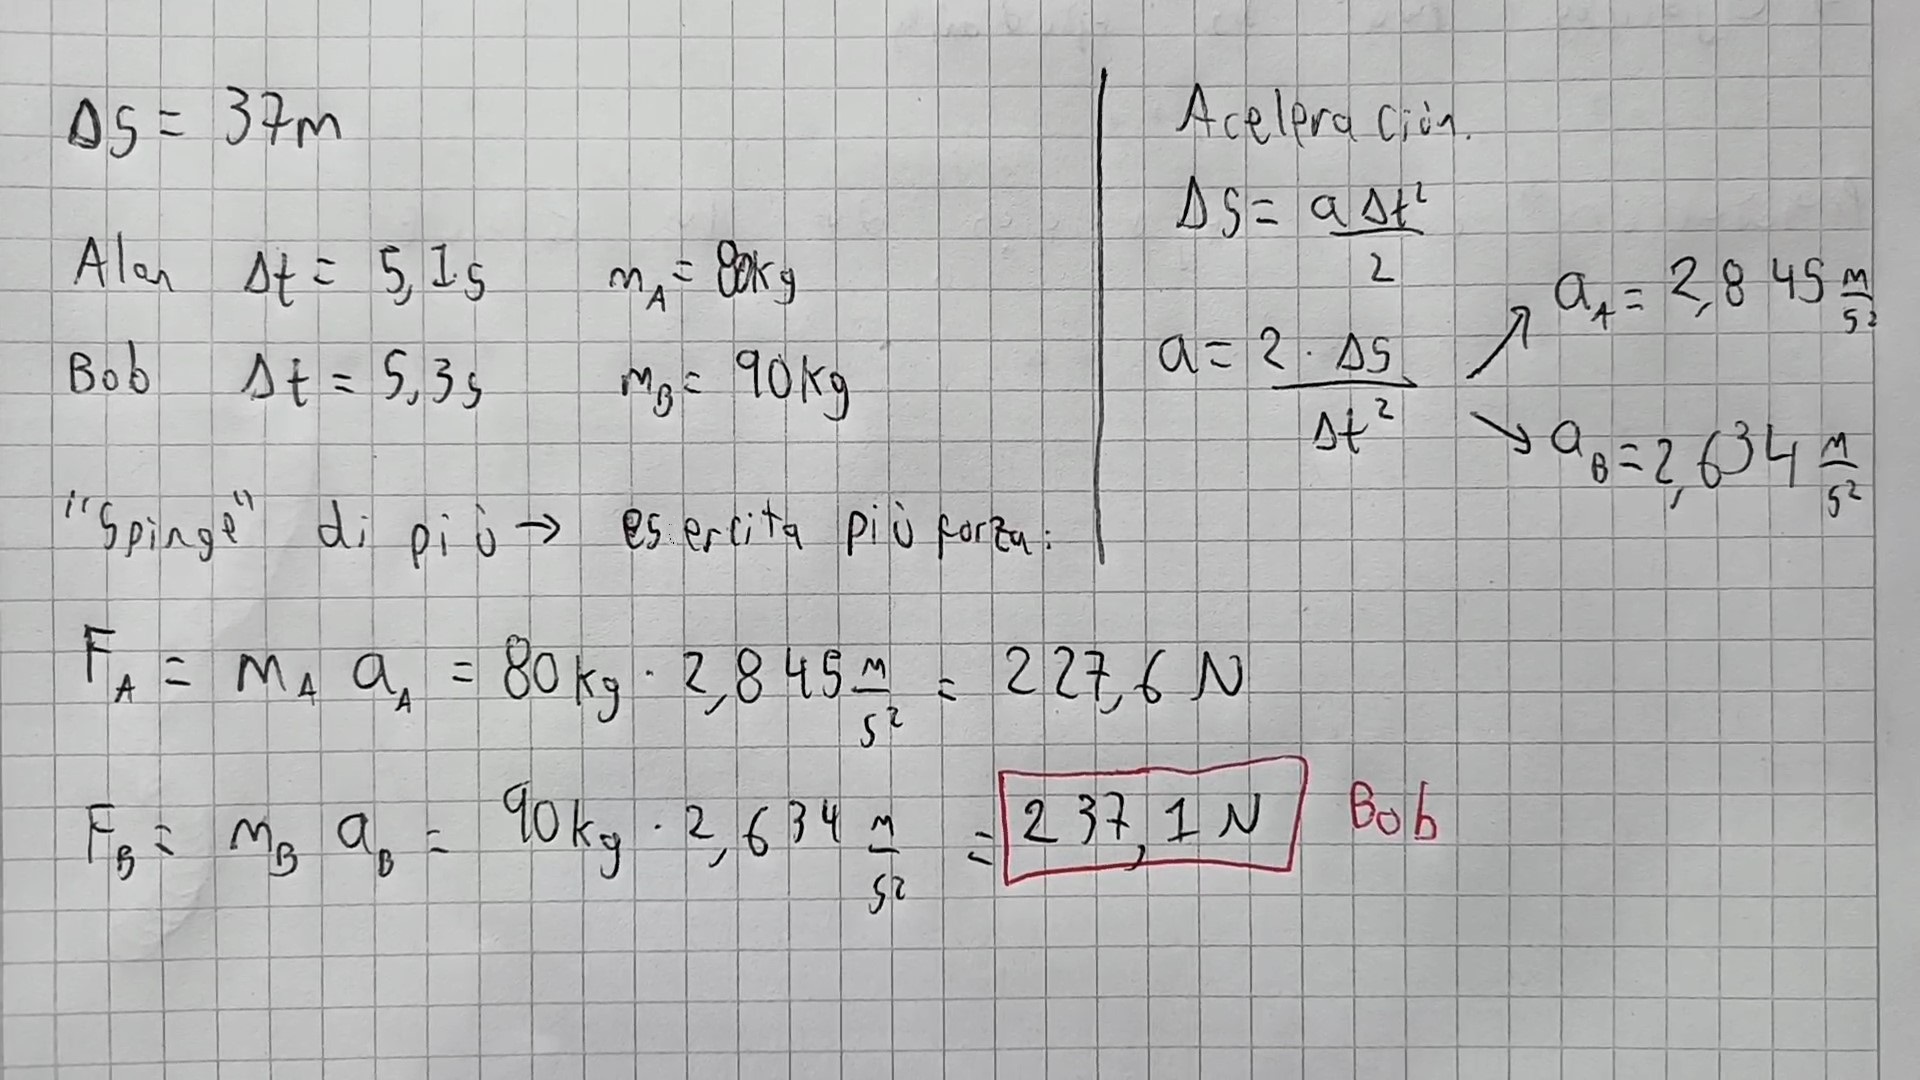 ΔS = 37m
Alan Δt = 5,1s m_A = 80kg
Bob Δt = 5,3s m_B = 90kg
"Spinge" di più → esercita più forza:
Aceleración.
ΔS = a Δt² / 2
a = 2 · ΔS / Δt²
↗ a_A = 2,845 m/s²
↘ a_B = 2,634 m/s²
F_A = m_A a_A = 80kg · 2,845 m/s² = 227,6 N
F_B = m_B a_B = 90kg · 2,634 m/s² = 237,1 N Bob